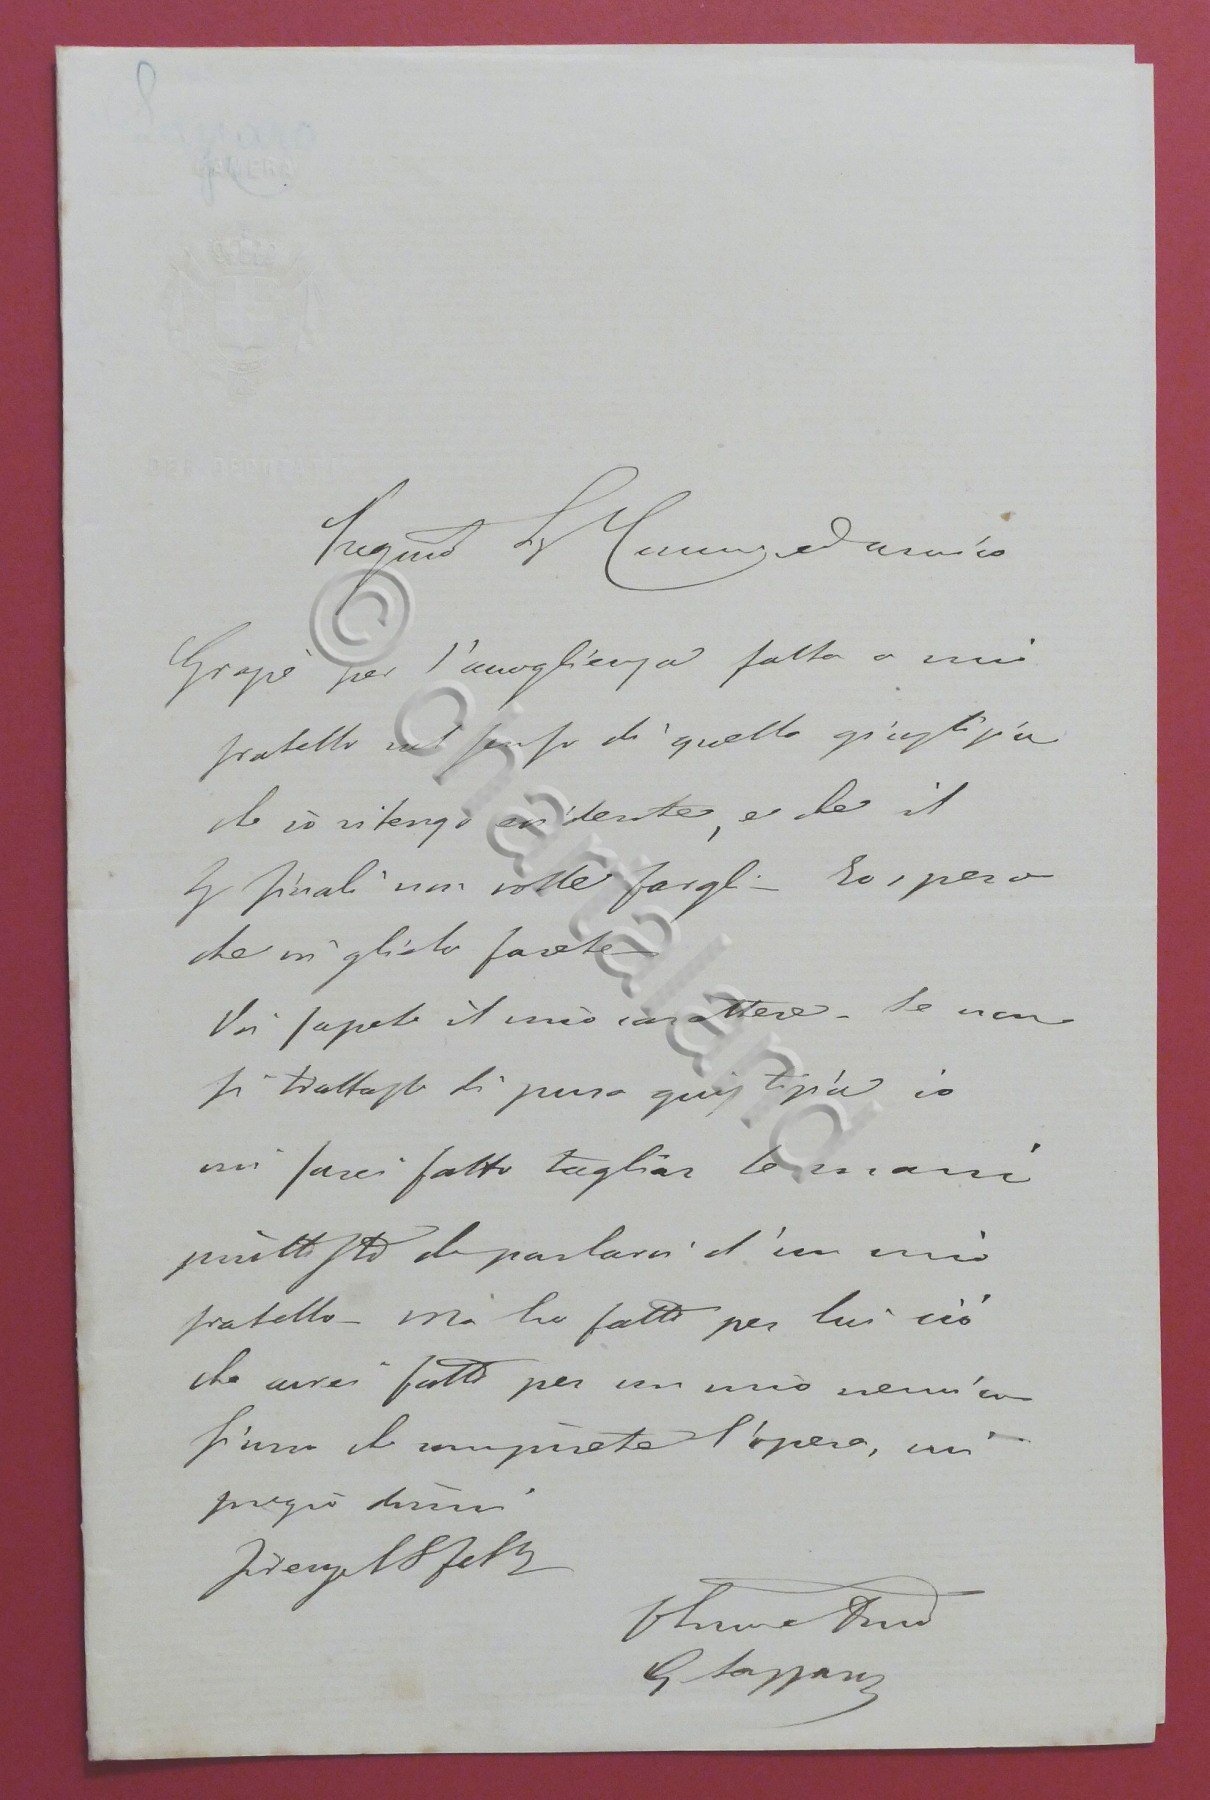 Lazzaro
CAMERA
Pregmo Sr Comm. ed amico
Grazie per l'accoglienza fatta a mio
fratello nel senso di quella giustizia
che io ritengo evidente, e che il
Sr Finali non volle fargli – Io spero
che voi gliela farete –
Voi sapete il mio carattere – Se non
si trattasse di pura giustizia io
mi sarei fatto tagliar le mani
piuttosto che parlarvi d'un mio
fratello – Ma ho fatto per lui ciò
che avrei fatto per un mio nemico
Sicuro che compirete l'opera, mi
pregio dirmi
Firenze
G Lazzaro
© chartaland